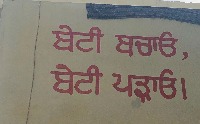 ਬੇਟੀ ਬਚਾਓ,
ਬੇਟੀ ਪੜ੍ਹਾਓ।